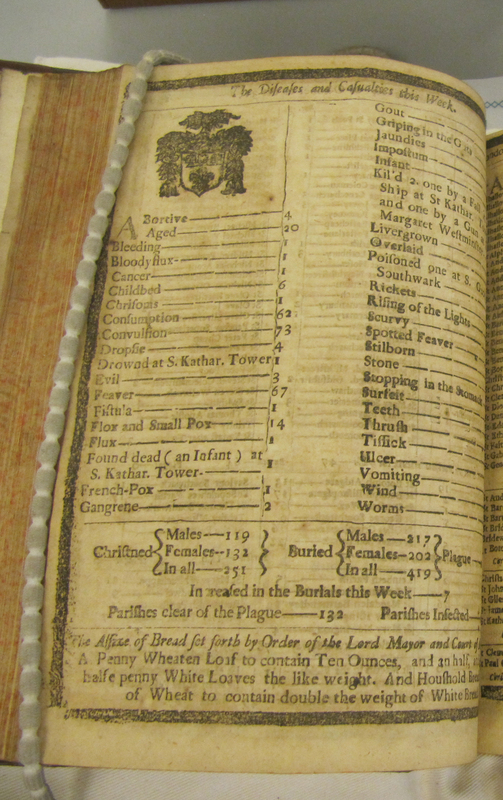 The Diseases and Casualties this Week.
Abortive 4
Aged 20
Bleeding 1
Bloodyflux 1
Cancer 1
Childbed 6
Chrisoms 1
Consumption 62
Convulsion 73
Dropsie 4
Drownd at S. Kathar. Tower 1
Evil 3
Feaver 67
Fistula 1
Flox and Small Pox 14
Flux 1
Found dead (an Infant) at
S. Kathar. Tower 1
French-Pox 1
Gangrene 2
Gout
Griping in the Guts
Jaundies
Impostum
Infant
Kil'd 2. one by a Fall
Ship at St Kathar.
and one by a Gun
Margaret Westminster
Livergrown
Overlaid
Poisoned one at S.
Southwark
Rickets
Rising of the Lights
Scurvy
Spotted Feaver
Stilborn
Stone
Stopping in the Stomach
Surfeit
Teeth
Thrush
Tissick
Ulcer
Vomiting
Wind
Worms
Christned Males 119 Females 132 In all 251 Buried Males 217 Females 202 In all 419 Plague
Increased in the Burials this Week 7
Parishes clear of the Plague 132 Parishes Infected
The Assize of Bread set forth by Order of the Lord Mayor and Court of
A Penny Wheaten Loaf to contain Ten Ounces, and an half,
halfe penny White Loaves the like weight. And Houshold
of Wheat to contain double the weight of White